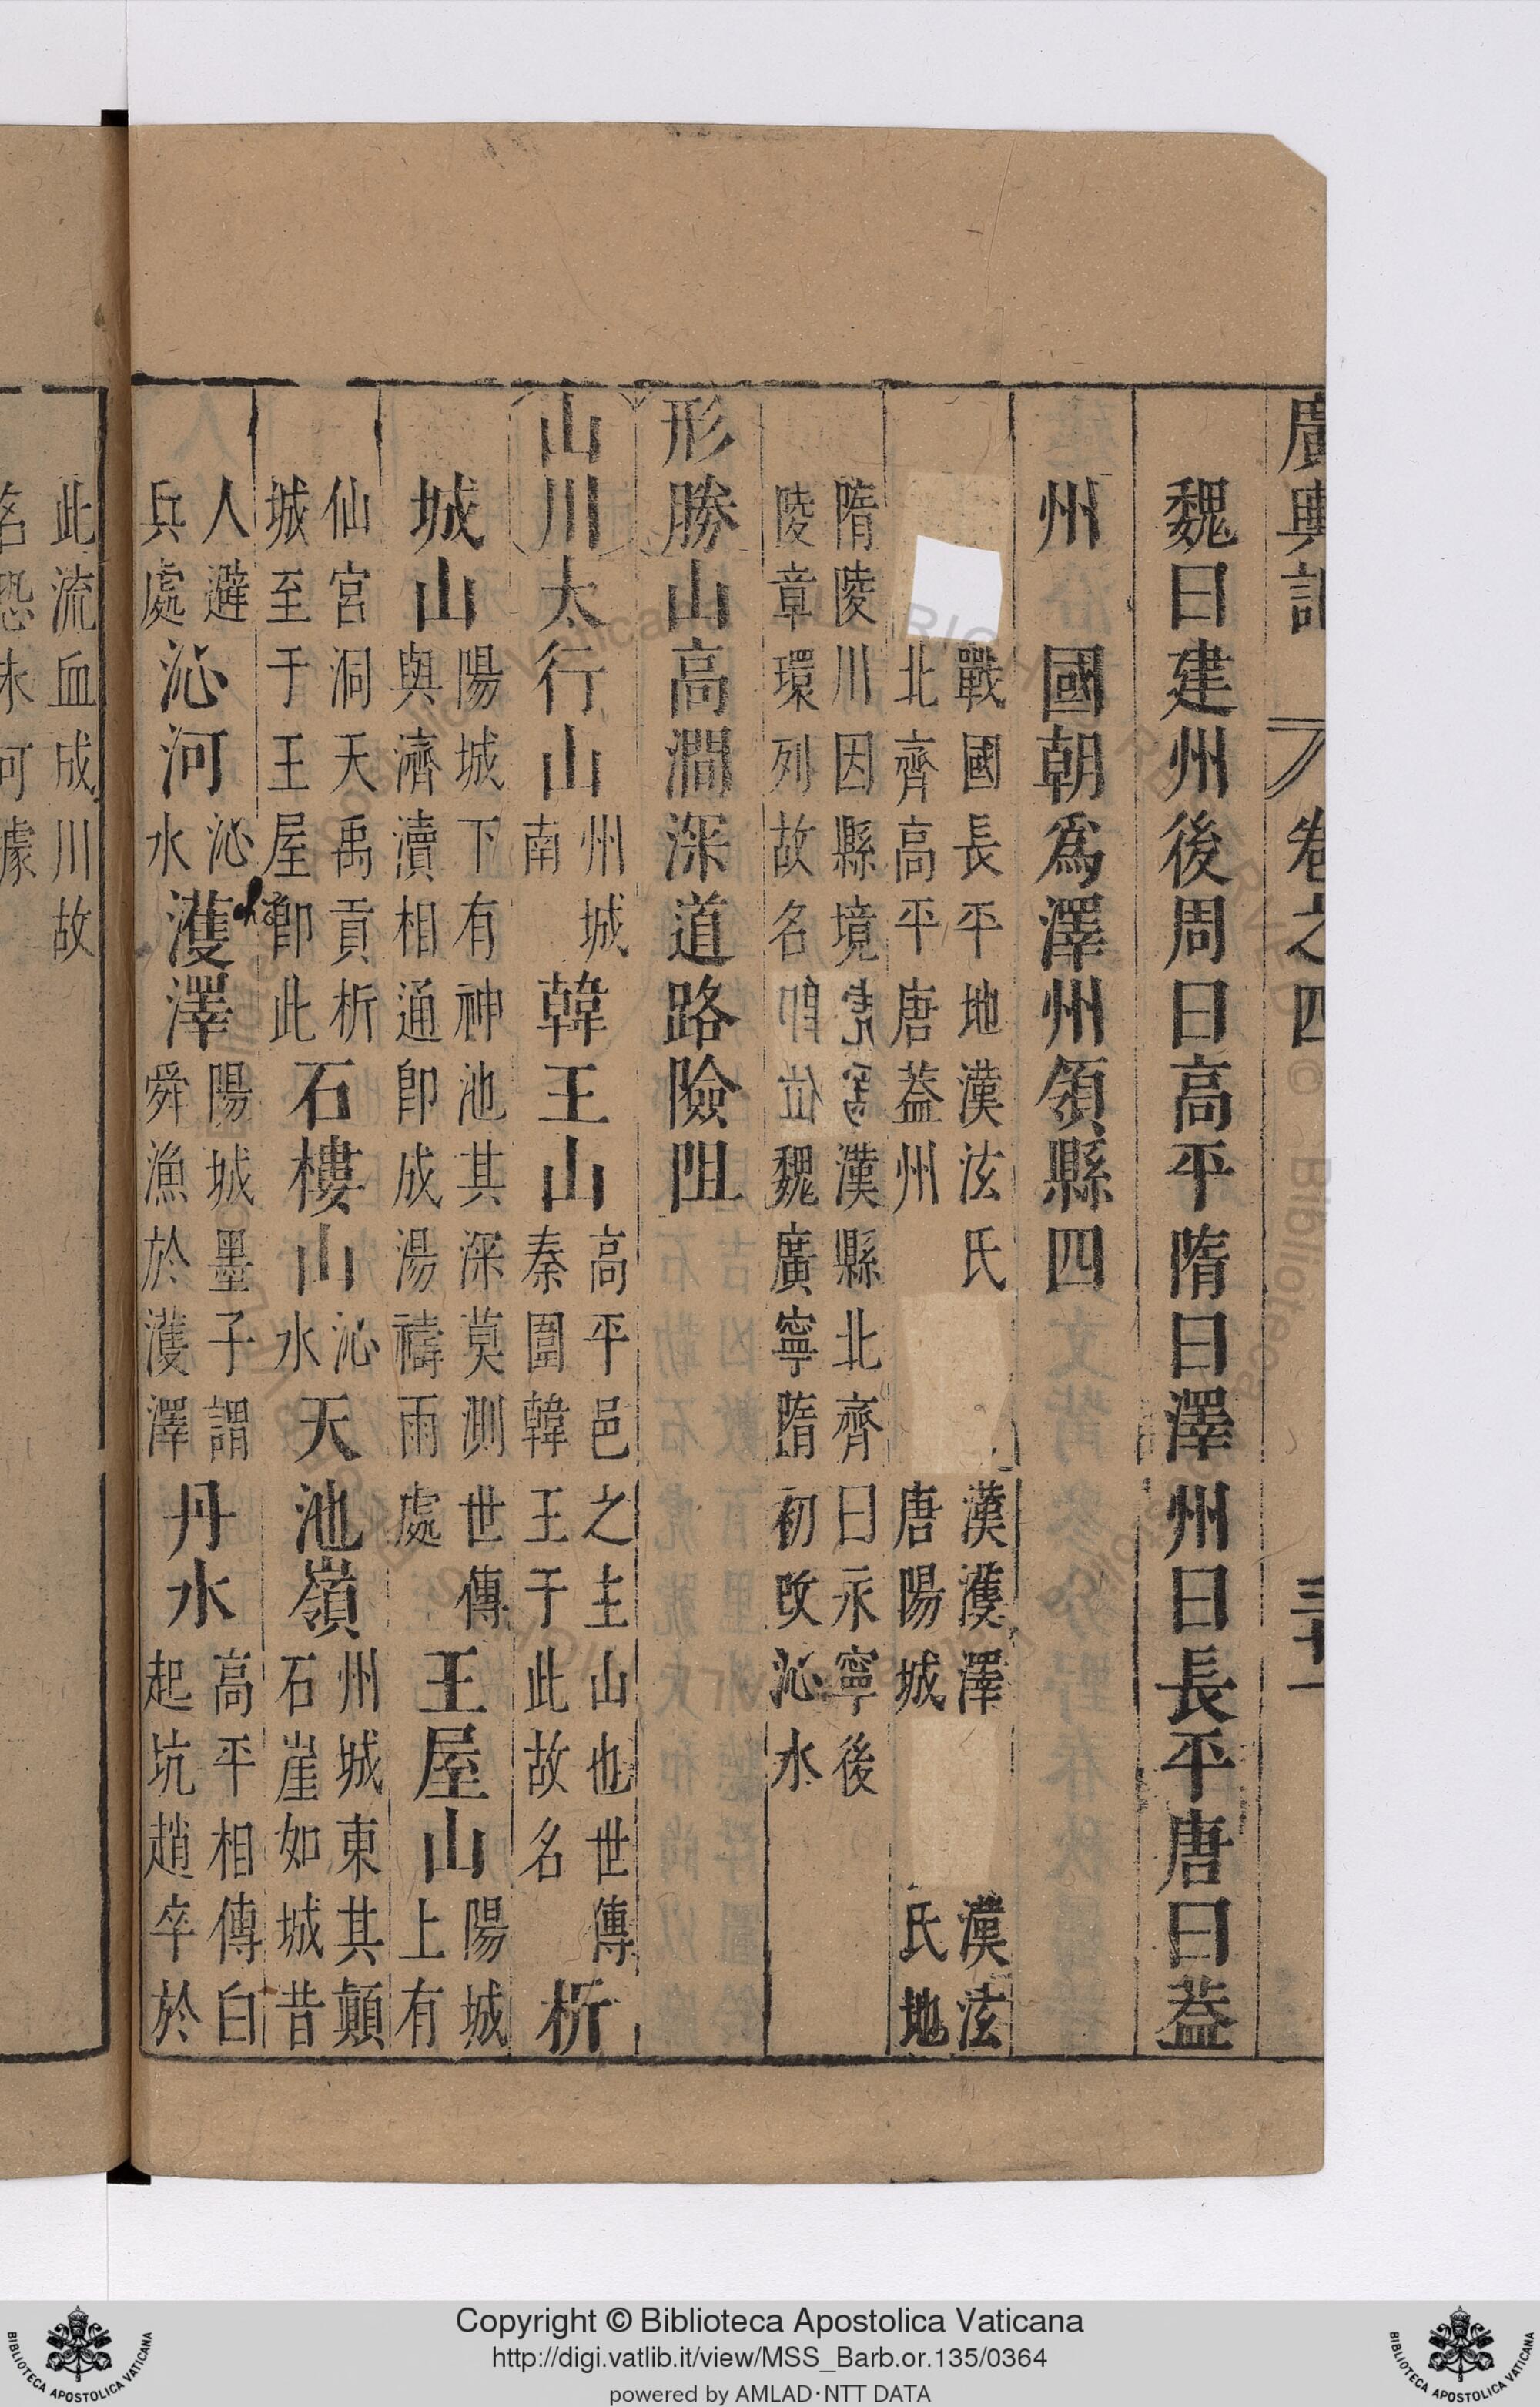 廣輿記 卷之四 三十一
魏曰建州後周曰高平隋曰澤州曰長平唐曰蓋
州 國朝爲澤州領縣四
戰國長平地漢泫氏北齊高平唐蓋州 漢濩澤唐陽城 漢泫氏地
隋陵川因縣境陵章環列故名 漢縣北齊曰永寧後魏廣寧隋初改沁水
形勝山高澗深道路險阻
山川太行山州城南韓王山高平邑之主山也世傳秦圍韓王于此故名析
城山陽城下有神池其深莫測世傳與濟瀆相通卽成湯禱雨處王屋山陽城上有
仙宮洞天禹貢析城至于王屋卽此石樓山沁水天池嶺州城東其顛石崖如城昔
人避兵處沁河沁水濩澤陽城墨子謂舜漁於濩澤丹水高平相傳白起坑趙卒於
此流血成川故名恐未可據
Copyright © Biblioteca Apostolica Vaticana
http://digi.vatlib.it/view/MSS_Barb.or.135/0364
powered by AMLAD·NTT DATA
BIBLIOTECA APOSTOLICA VATICANA
BIBLIOTECA APOSTOLICA VATICANA